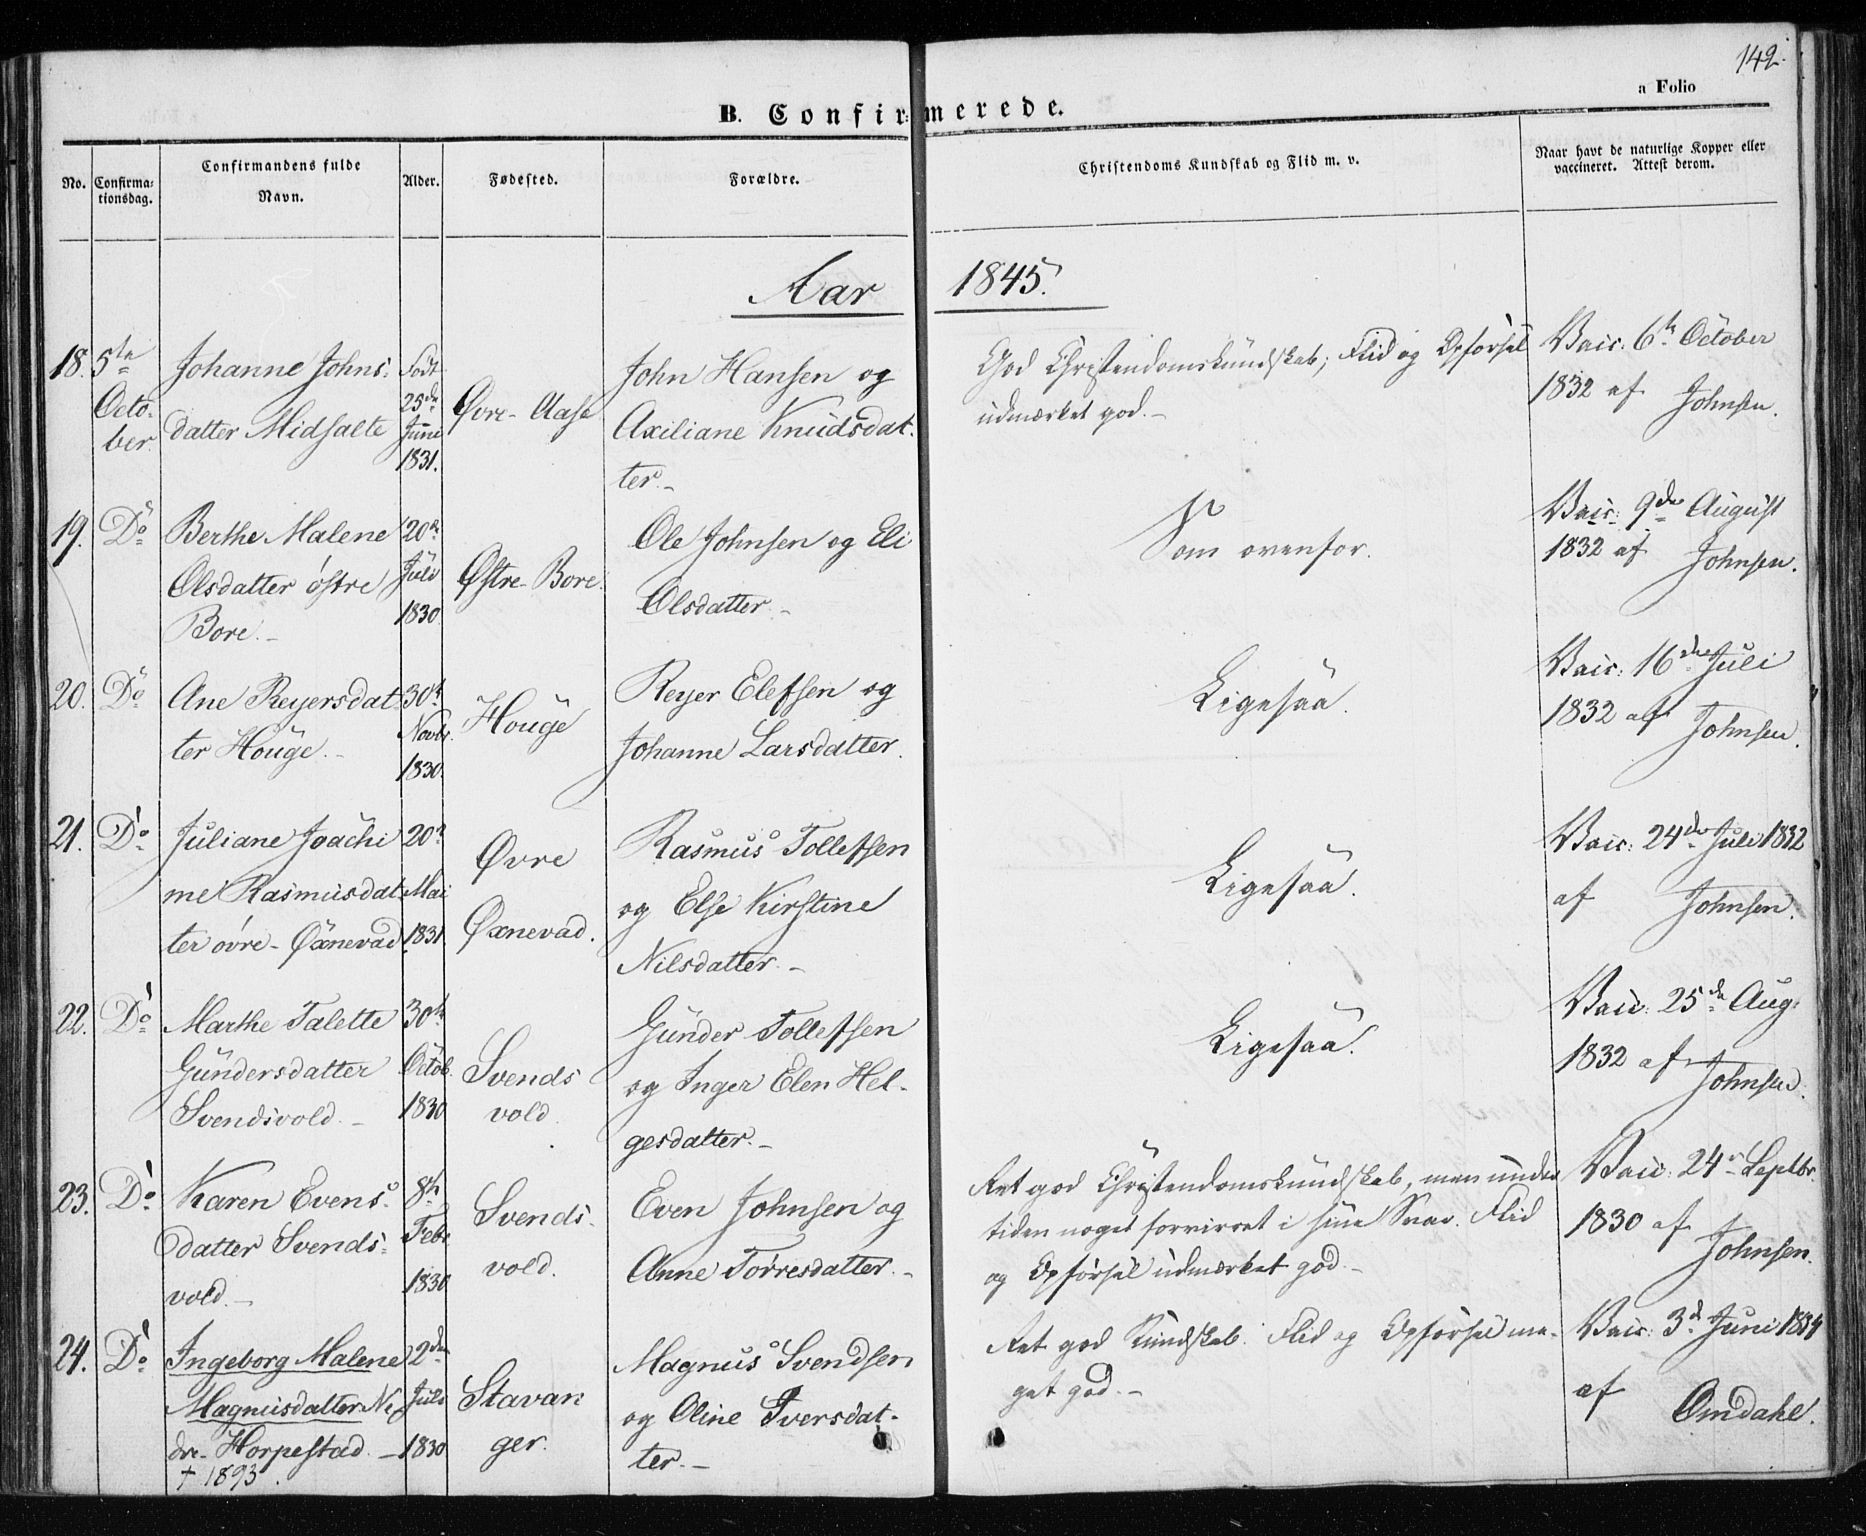 142.
a Folio
B. Confirmerede.
No.
Confirma-
tionsdag.
Confirmandens fulde
Navn.
Alder.
Fødested.
Forældre.
Christendoms Kundskab og Flid m. v.
Naar havt de naturlige Kopper eller
vaccineret. Attest derom.
Aar 1845.
18.
5te
Octo-
ber
Johanne Johns-
datter Midsaete
Født
25de
Juni
1831.
Øvre-Aase
John Hansen og
Axiliane Knudsdat-
ter.-
God Christendomskundskab; Flid og Opførsel
udmærket god.-
Vacc. 6te October
1832 af Johnsen.
19.
Do
Berthe Malene
Olsdatter østre
Bore.-
20de
Juli
1830
Østre-Bore.
Ole Johnsen og Eli
Olsdatter.-
Som ovenfor.
Vacc: 9de August
1832 af Johnsen.
20.
Do
Ane Reyersdat-
ter Houge.-
30te
Novbr.
1830.
Houge
Reyer Elefsen og
Johanne Larsdatter.
Ligesaa.
Vacc: 16de Juli
1832 af Johnsen.
21.
Do
Juliane Joachi
me Rasmusdat-
ter øvre-Øxnevad
20de
Mai
1831.
Øvre
Øxnevad.
Rasmus Tollefsen
og Else Kirstine
Nilsdatter.-
Ligesaa.
Vacc: 24de Juli 1832
af Johnsen.
22.
Do
Marthe Talette
Gundersdatter
Svendsvold.-
30te
Octob.
1830
Svends
vold.
Gunder Tollefsen
og Inger Elen Hel-
gesdatter.-
Ligesaa.
Vacc: 25de Aug:
1832 af Johnsen.
23.
Do
Karen Evens-
datter Svends-
vold.-
8de
Febr
1830
Svends-
vold.
Even Johnsen og
Anne Torresdatter.-
Ret god Christendomskundskab, men under
tiden noget forvirret i sine Svar. Flid
og Opførsel udmærket god.-
Vacc: 24de Septbr.
1830 af Johnsen.
24.
Do
Ingeborg Malene
Magnusdatter Ne,
dre-Horpestad.-
† 1893.
2den
Juli
1830
Stavan
ger.
Magnus Svendsen
og Oline Iversdat-
ter.-
Ret god Kundskab. Flid og Opførsel me-
get god.-
Vacc: 3de Juni 1834
af Omdahl.